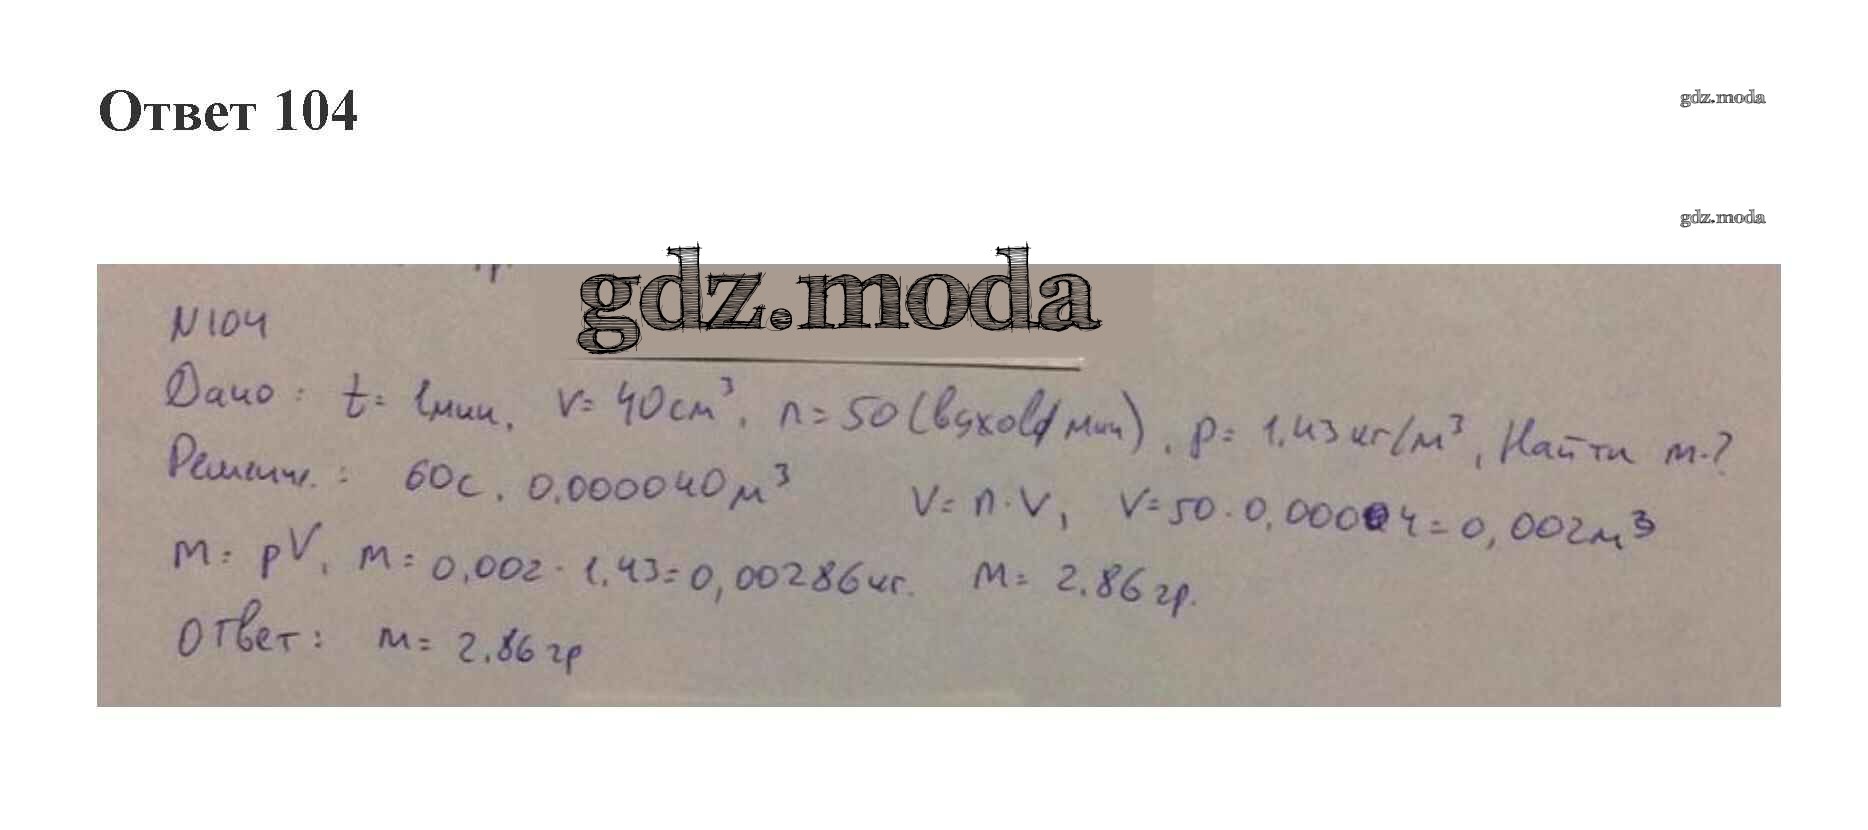 Ответ 104
gdz.moda
gdz.moda
gdz.moda
N104
Дано: t= 1мин, V= 40см³, n=50(вдхов/мин), p= 1.43кг/м³, Найти m-?
Решение: 60с, 0.000040м³ V= n·V, V=50·0,00004=0,002м³
m= pV, m= 0,002·1.43=0,00286кг. m= 2.86гр.
Ответ: m= 2.86гр